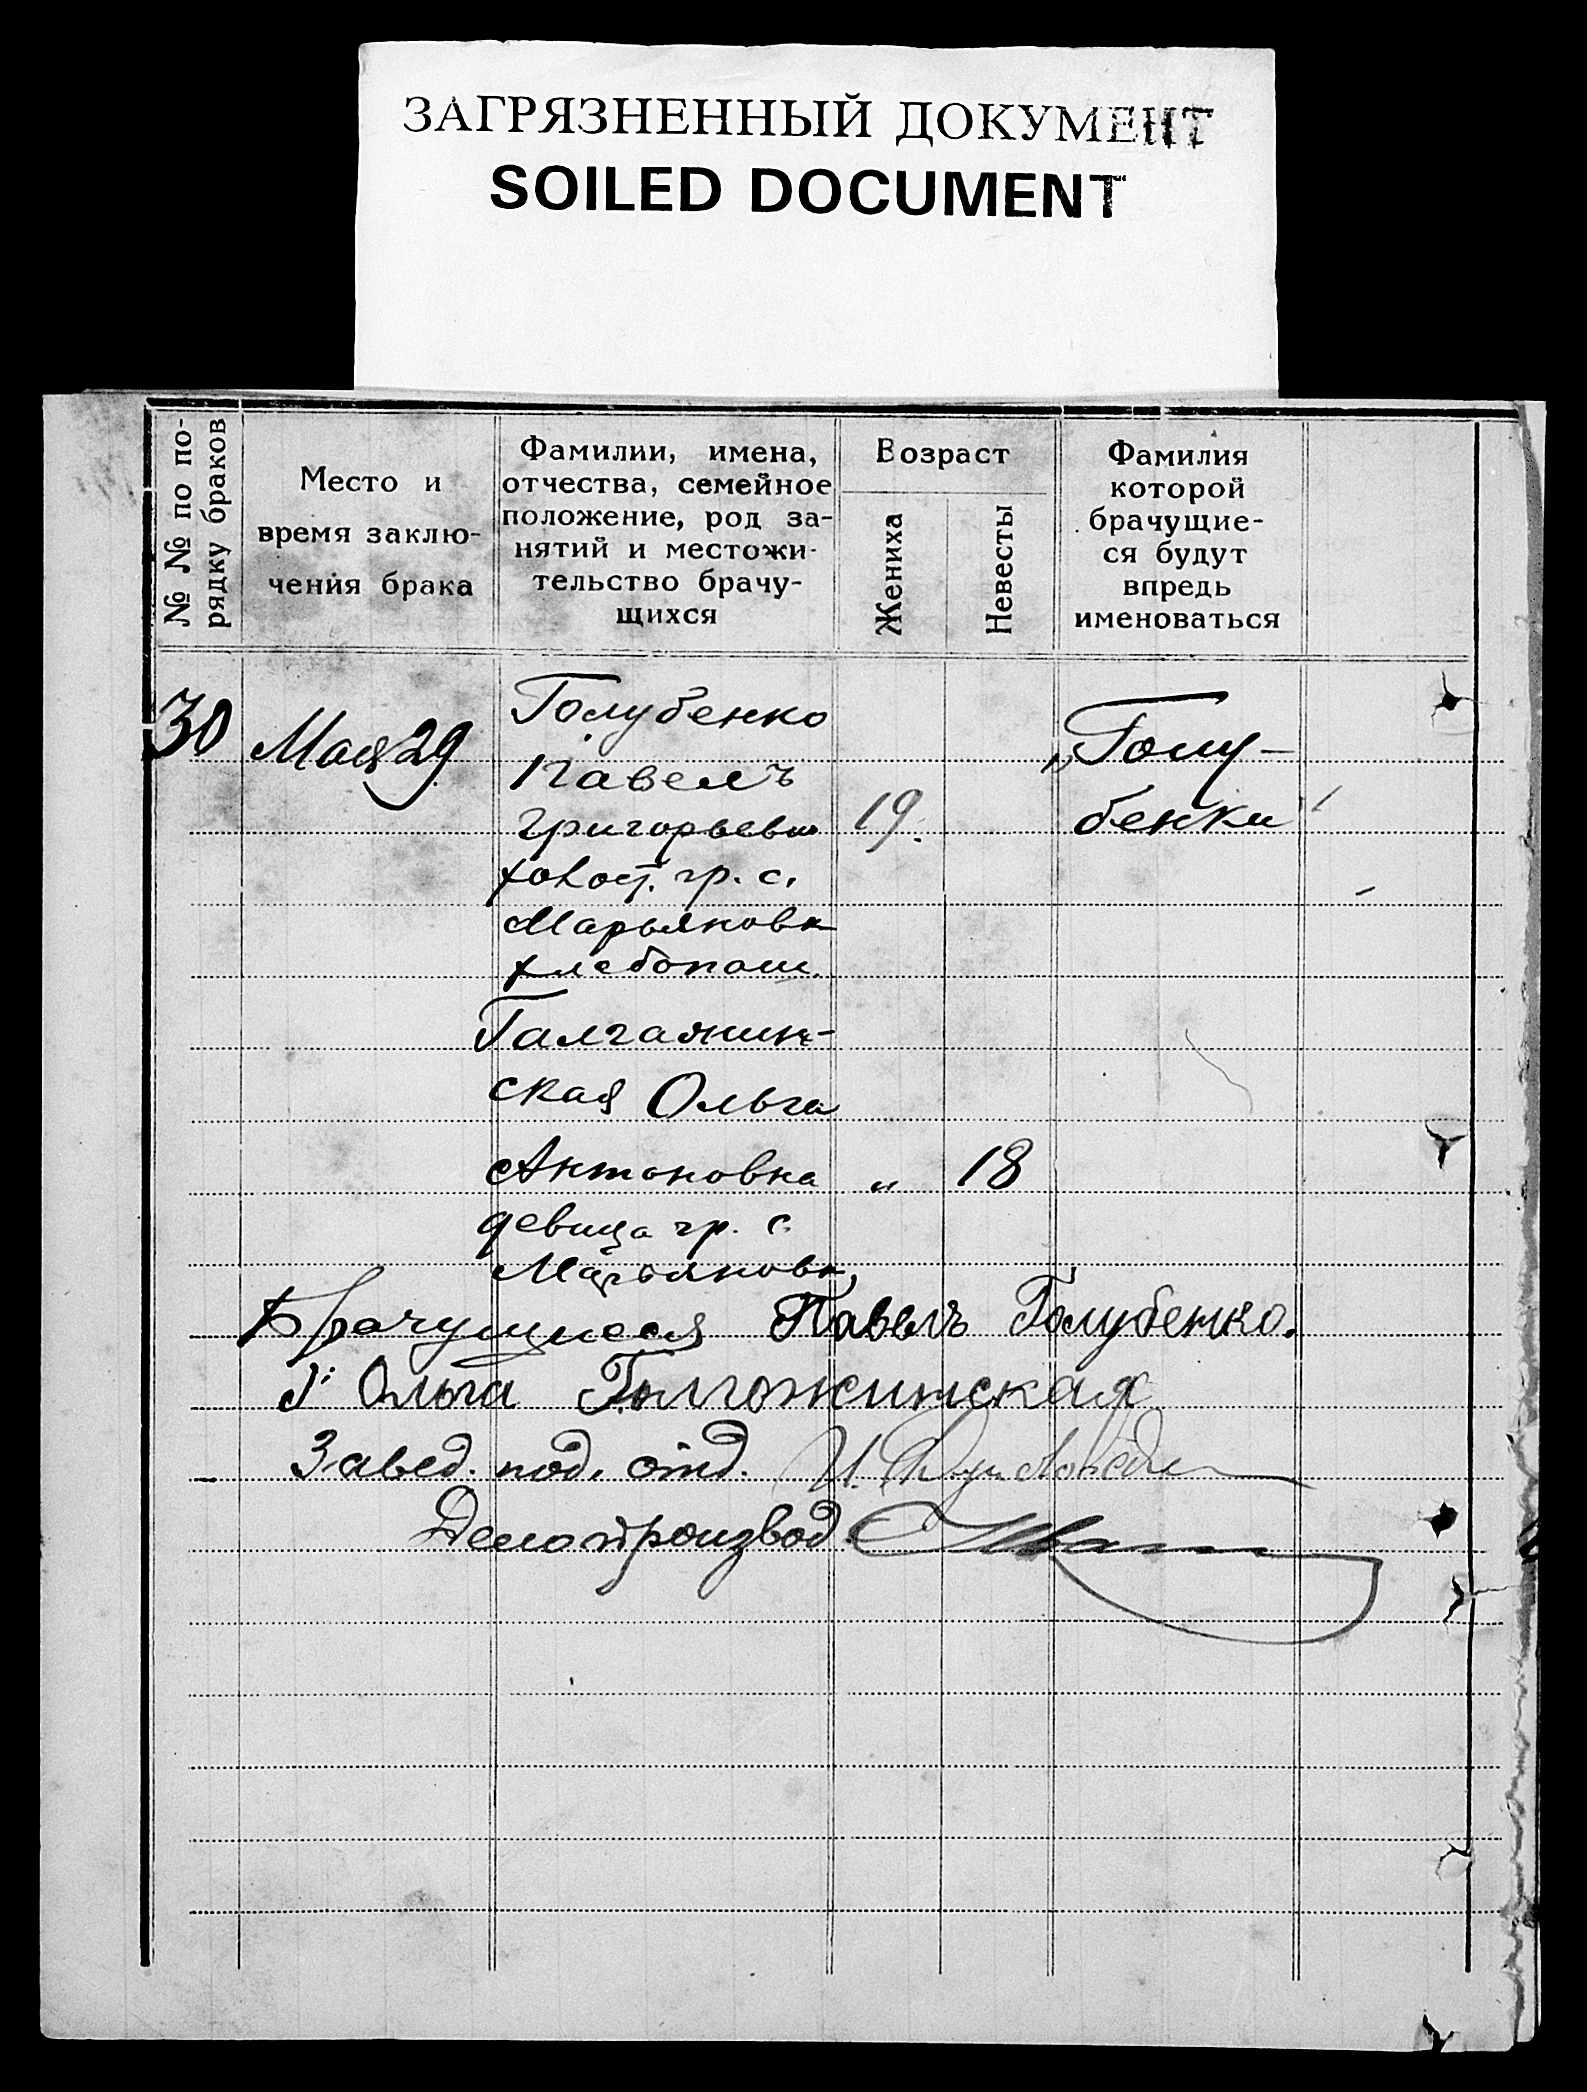 ЗАГРЯЗНЕННЫЙ ДОКУМЕНТ
SOILED DOCUMENT
№ № по по-
рядку браков
Место и
время заклю-
чения брака
Фамилии, имена,
отчества, семейное
положение, род за-
нятий и местожи-
тельство брачу-
щихся
Возраст
Жениха
Невесты
Фамилия
которой
брачущие-
ся будут
впредь
именоваться
30
Мая 29
Голубенко
Павелъ
Григорьевич
холост. гр. с.
Марьяновк
хлебопаш.
19.
„Голу-
бенки"
Галгажин-
ская Ольга
Антоновна
девица гр. с.
Марьяновк,
„
18
Брачущиеся Павелъ Голубенко.
I Ольга Голгожинская
Завед. под. отд. И.
Делопроизвод.